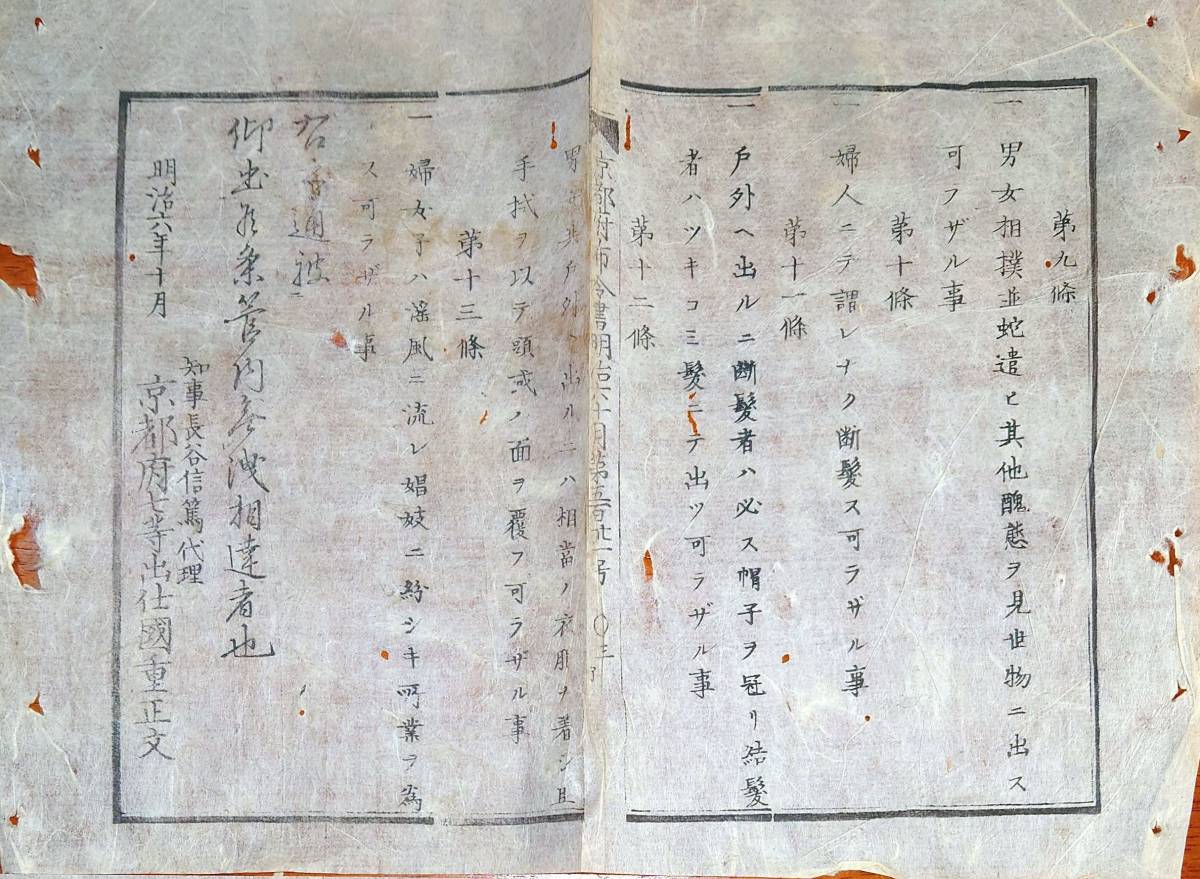 第九條
一 男女相撲並蛇遣ヒ其他醜態ヲ見世物ニ出ス
可フザル事
第十條
一 婦人ニテ謂レナク断髪ス可ラザル事
第十一條
一 戸外ヘ出ルニ断髪者ハ必ス帽子ヲ冠リ結髪
者ハツキコミ髪ニテ出ツ可ラザル事
第十二條
京都府布令書明治六年十月第五百廿一号 〇三
男女共戸外ヘ出ルニハ相當ノ衣服ヲ着シ且
手拭ヲ以テ頭或ノ面ヲ覆フ可ラザル事
第十三條
一 婦女子ハ淫風ニ流レ娼妓ニ紛シキ所業ヲ為
ス可ラザル事
右之通被
仰出候条管内無洩相達者也
明治六年十月
知事長谷信篤代理
京都府七等出仕國重正文